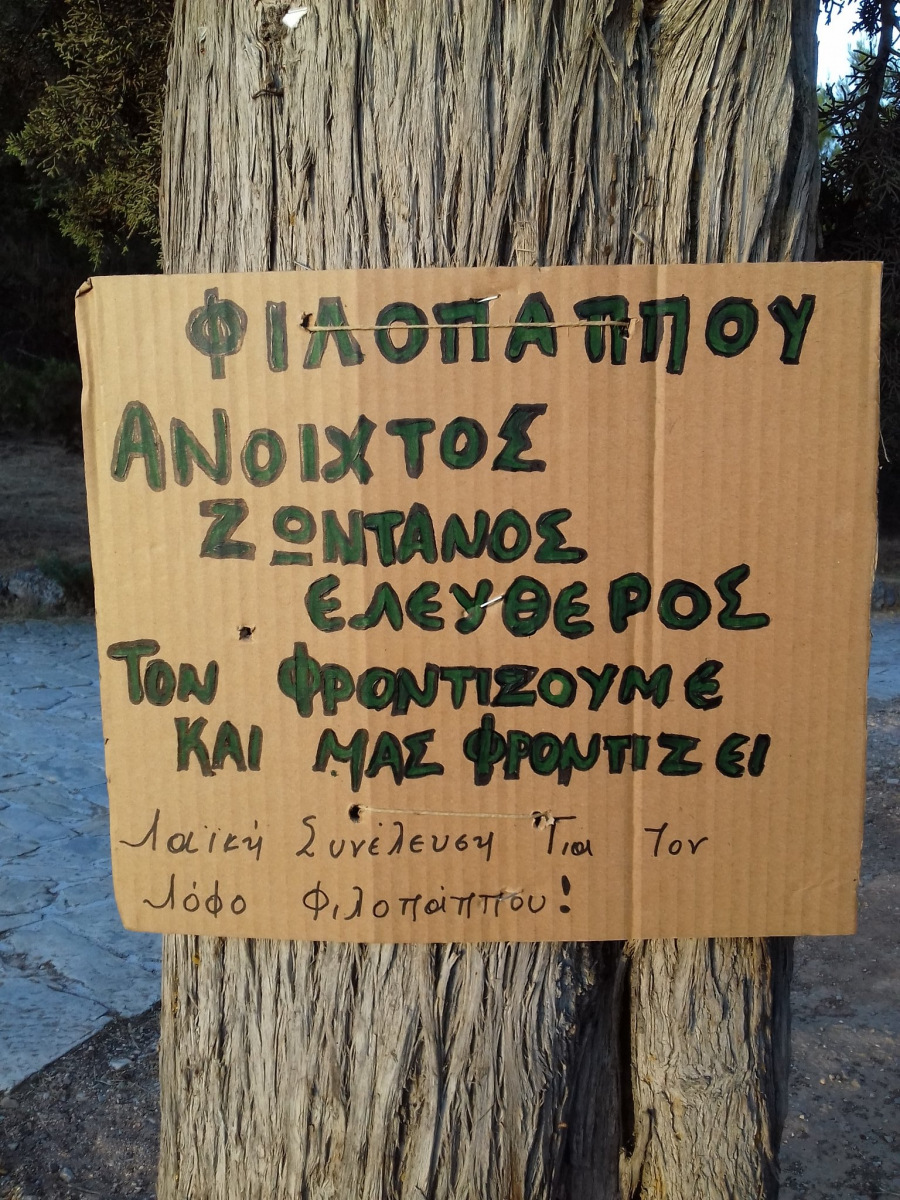 ΦΙΛΟΠΑΠΠΟΥ
ΑΝΟΙΧΤΟΣ
ΖΩΝΤΑΝΟΣ
ΕΛΕΥΘΕΡΟΣ
ΤΟΝ ΦΡΟΝΤΙΖΟΥΜΕ
ΚΑΙ ΜΑΣ ΦΡΟΝΤΙΖΕΙ
Λαϊκή Συνέλευση Για Τον
Λόφο Φιλοπάππου!